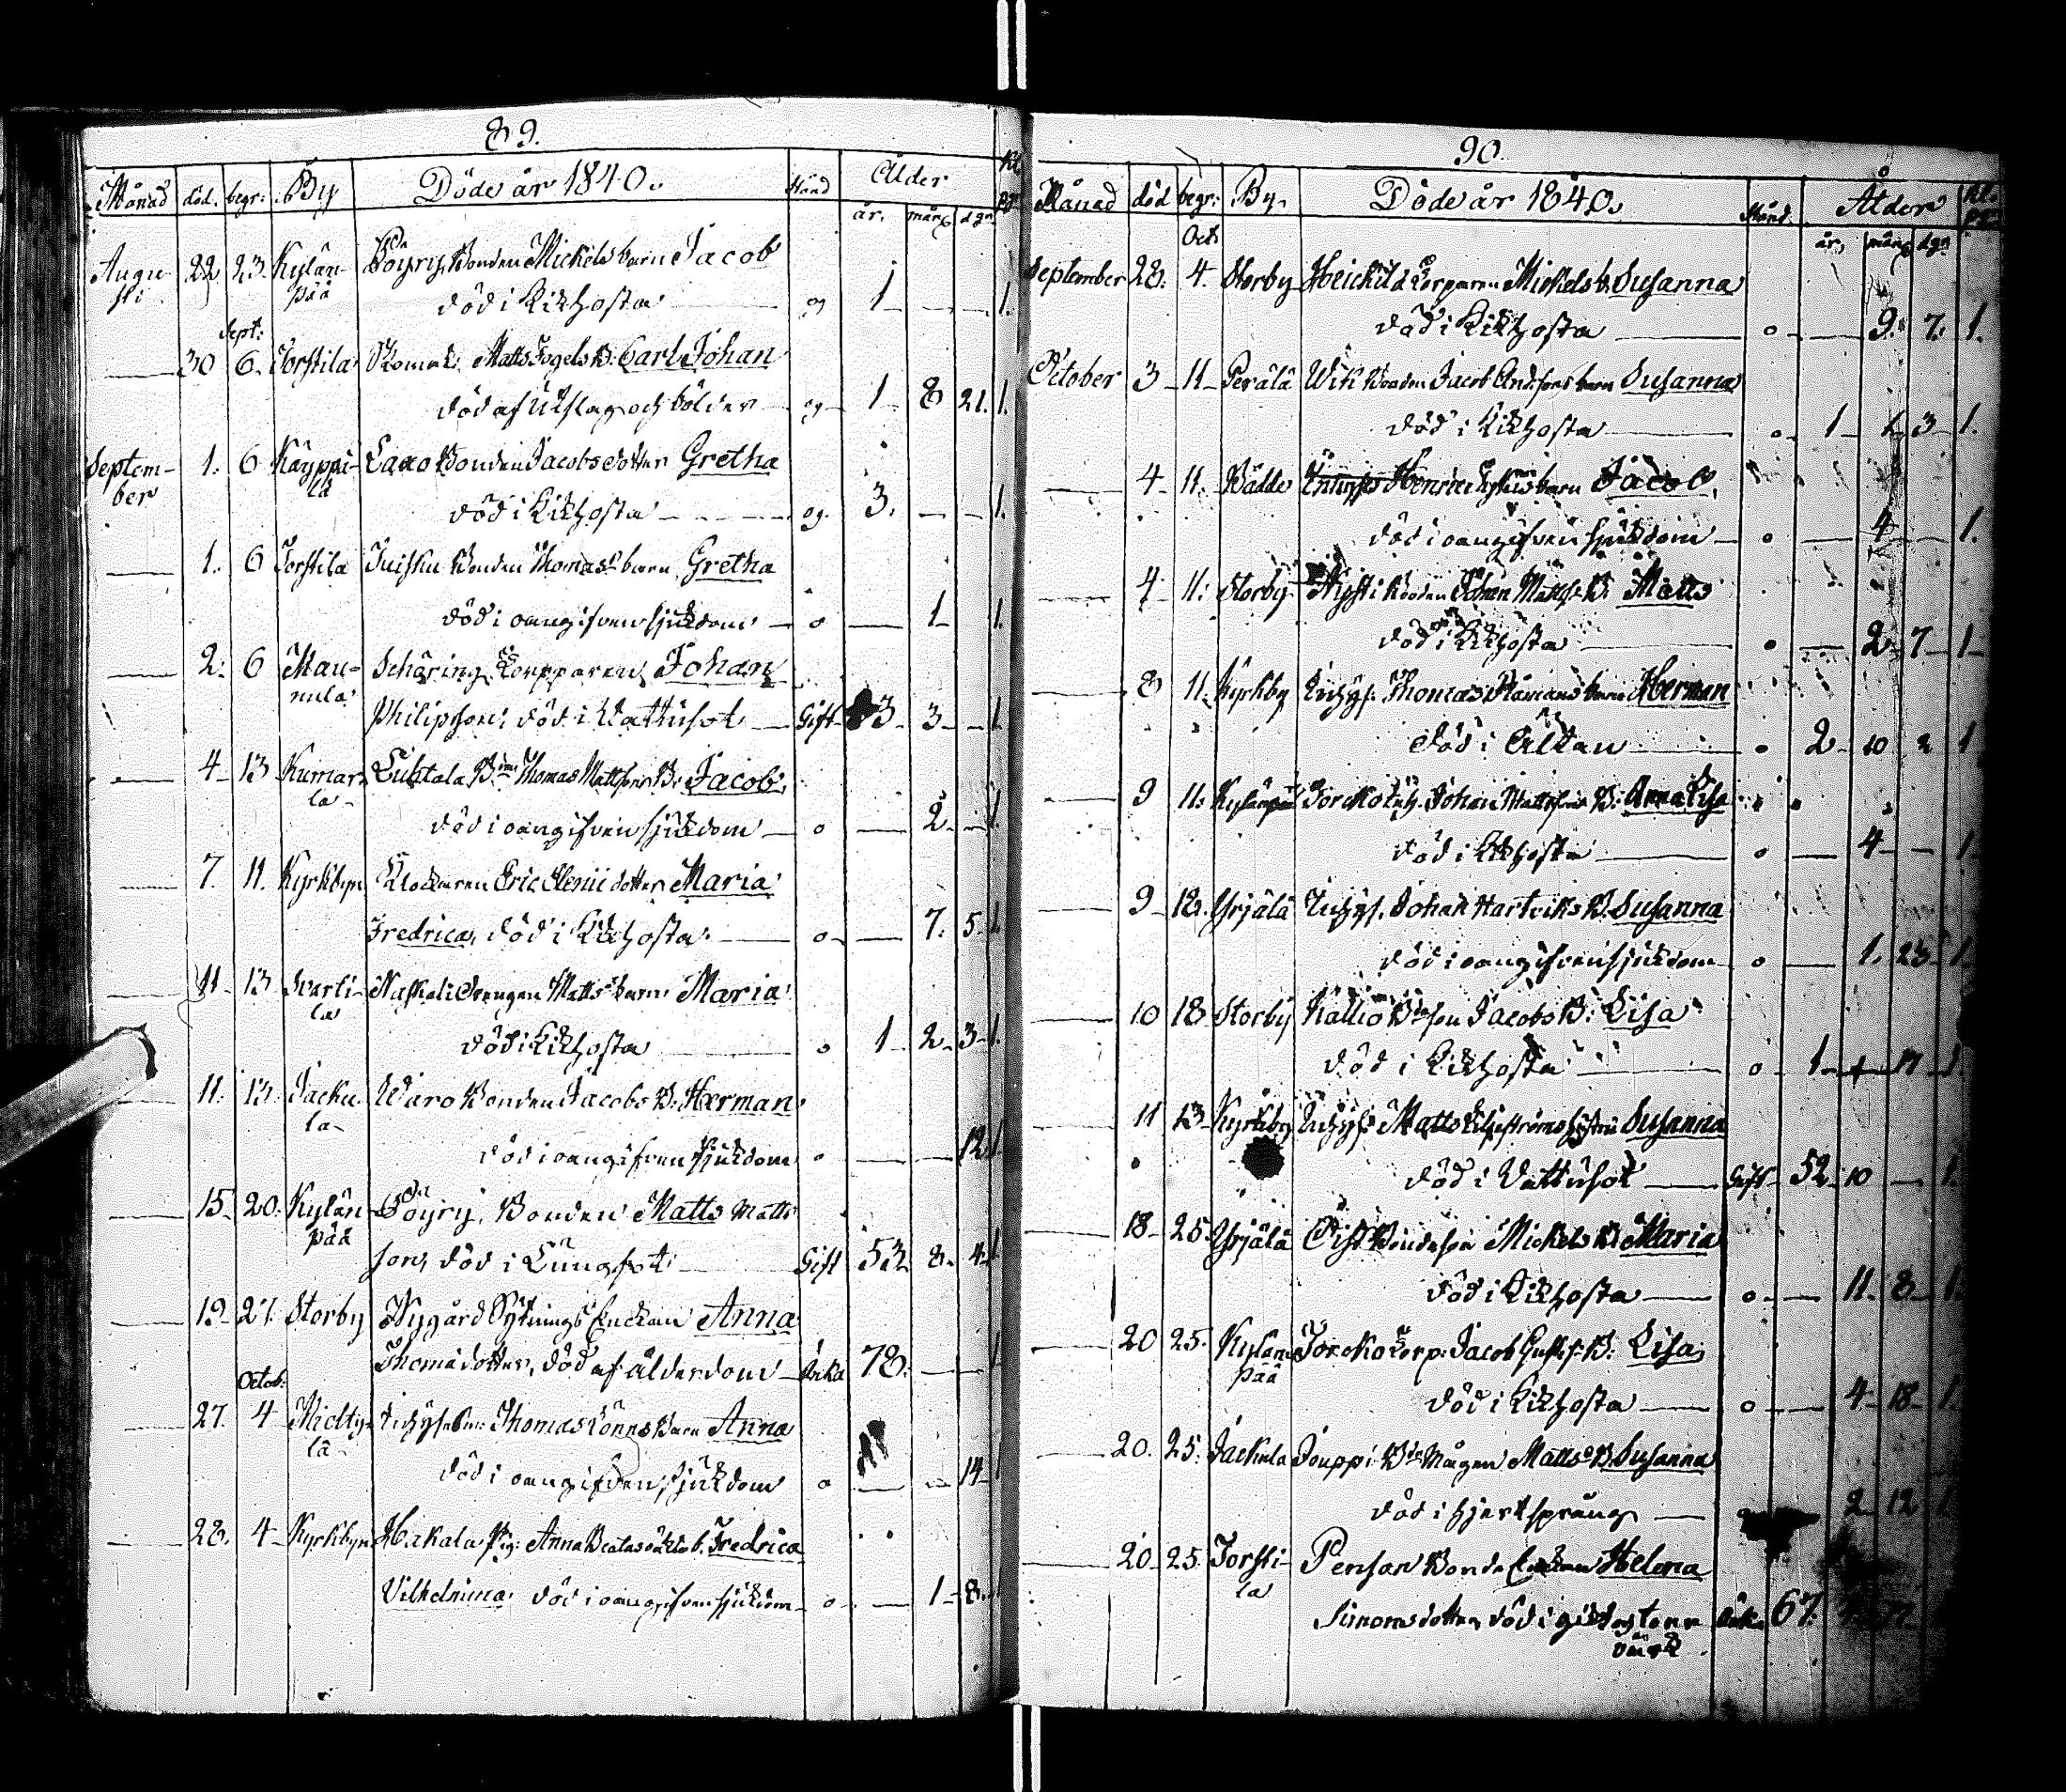 89.
Månad död. begr: By Döde år 1840. Stånd Ålder
år. mån dgr
Augu- 22 23. Kylän- Pöyry, Bonden Mickels barn Jacob
sti pää död i Kikhosta og 1 1.
Sept:
30 6. Torstila Matts Fogels B: Carl Johan
död af Utslag och bölder og 1 8 21. 1.
Septem- 1. 6 Käyppi- Laxo Bonden Jacobs dotter Gretha
ber lä död i Kikhosta og. 3. 1.
1. 6 Torstila Inisku Bonden Thomas barn Gretha
död i oangifven sjukdom o 1 1.
2. 6 Mau- Schäring Torpparen Johan
nula Philipsson, död i Vattusot Gift 3 3 1.
4 13 Kumar- Luhtala B. Thomas Mattssons B: Jacob,
la död i oangifven sjukdom o 2 1.
7. 11. Kyrkbyn Klockaren Eric Elenii dotter Maria
Fredrica, död i Kikhosta. o 7. 5 1.
11 13 Svarti- Naskali Drengen Matts barn Maria
la död i Kikhosta o 1 2 3 1.
11. 13. Jacku- Waro Bonden Jacobs B. Herman
la död i oangifven sjukdom o 12 1.
15 20. Kylän- Pöyry, Bonden Matts Matts
pää son, död i Lungsot Gift 53 8 4 1
19 27. Storby Nygård Sytnings Enckan Anna
Thomädotter, död af ålderdom Änka 78.
Octob:
27. 4 Mielty- Thomas Lönns Barn Anna
lä död i oangifven sjukdom o 14
28. 4 Kyrkbyn Hakala Pig: Anna Beatas oäkta b. Fredrica
Vilhelmina. död i oangifven sjukdom o 1 8.
90.
Månad död begr: By. Döde år 1840. Stånd. Ålder
år. mån dgr
Oct.
September 28. 4. Storby Heickilä Torparen Mickels b. Susanna
död i Kikhosta o 9. 7. 1.
October 3 11 Perälä Wik Bonden Jacob Anderssons barn Susanna
död i Kikhosta o 1 3 1.
4 11. Bädde Henric barn Jacob,
död i oangifven sjukdom o 4 1.
4 11: Storby Bonden Johan Mattss. B: Matts
död i Kikhosta o 2 7 1
8 11 Kyrkby Inhys. Thomas barn Herman
död i Ältan o 2 10 2 1
9 11: Kylänpää Torcko Inh. Johan Mattssons B: Anna Lisa
död i Kikhosta o 4 1
9 18. Yrjälä Inhys. Johan Hartviks B. Susanna
död i oangifven sjukdom o 1. 23 1.
10 18 Storby Kallio Bdeson Jacobs B: Lisa
död i Kikhosta o 1 17 1
11 13 Kyrkby Inhys. Matts hustru Susanna
död i Vattusot Gift 52 10 1.
18 25. Yrjälä Öist Bondeson Mickels B: Maria
död i Kikhosta o 11 8 1.
20 25. Kylän- Torcko Torp: Jacob Gustfs. B: Lisa
pää död i Kikhosta o 4 18 1.
20. 25. Jackula Jouppi Bde Mågen Matts B. Susanna
död i hjertsprång 2 12 1
20. 25. Torsti- Pensar Bonde Enckan Helena
la Simons dotter, död i gikt och torr Änka 67.
värk